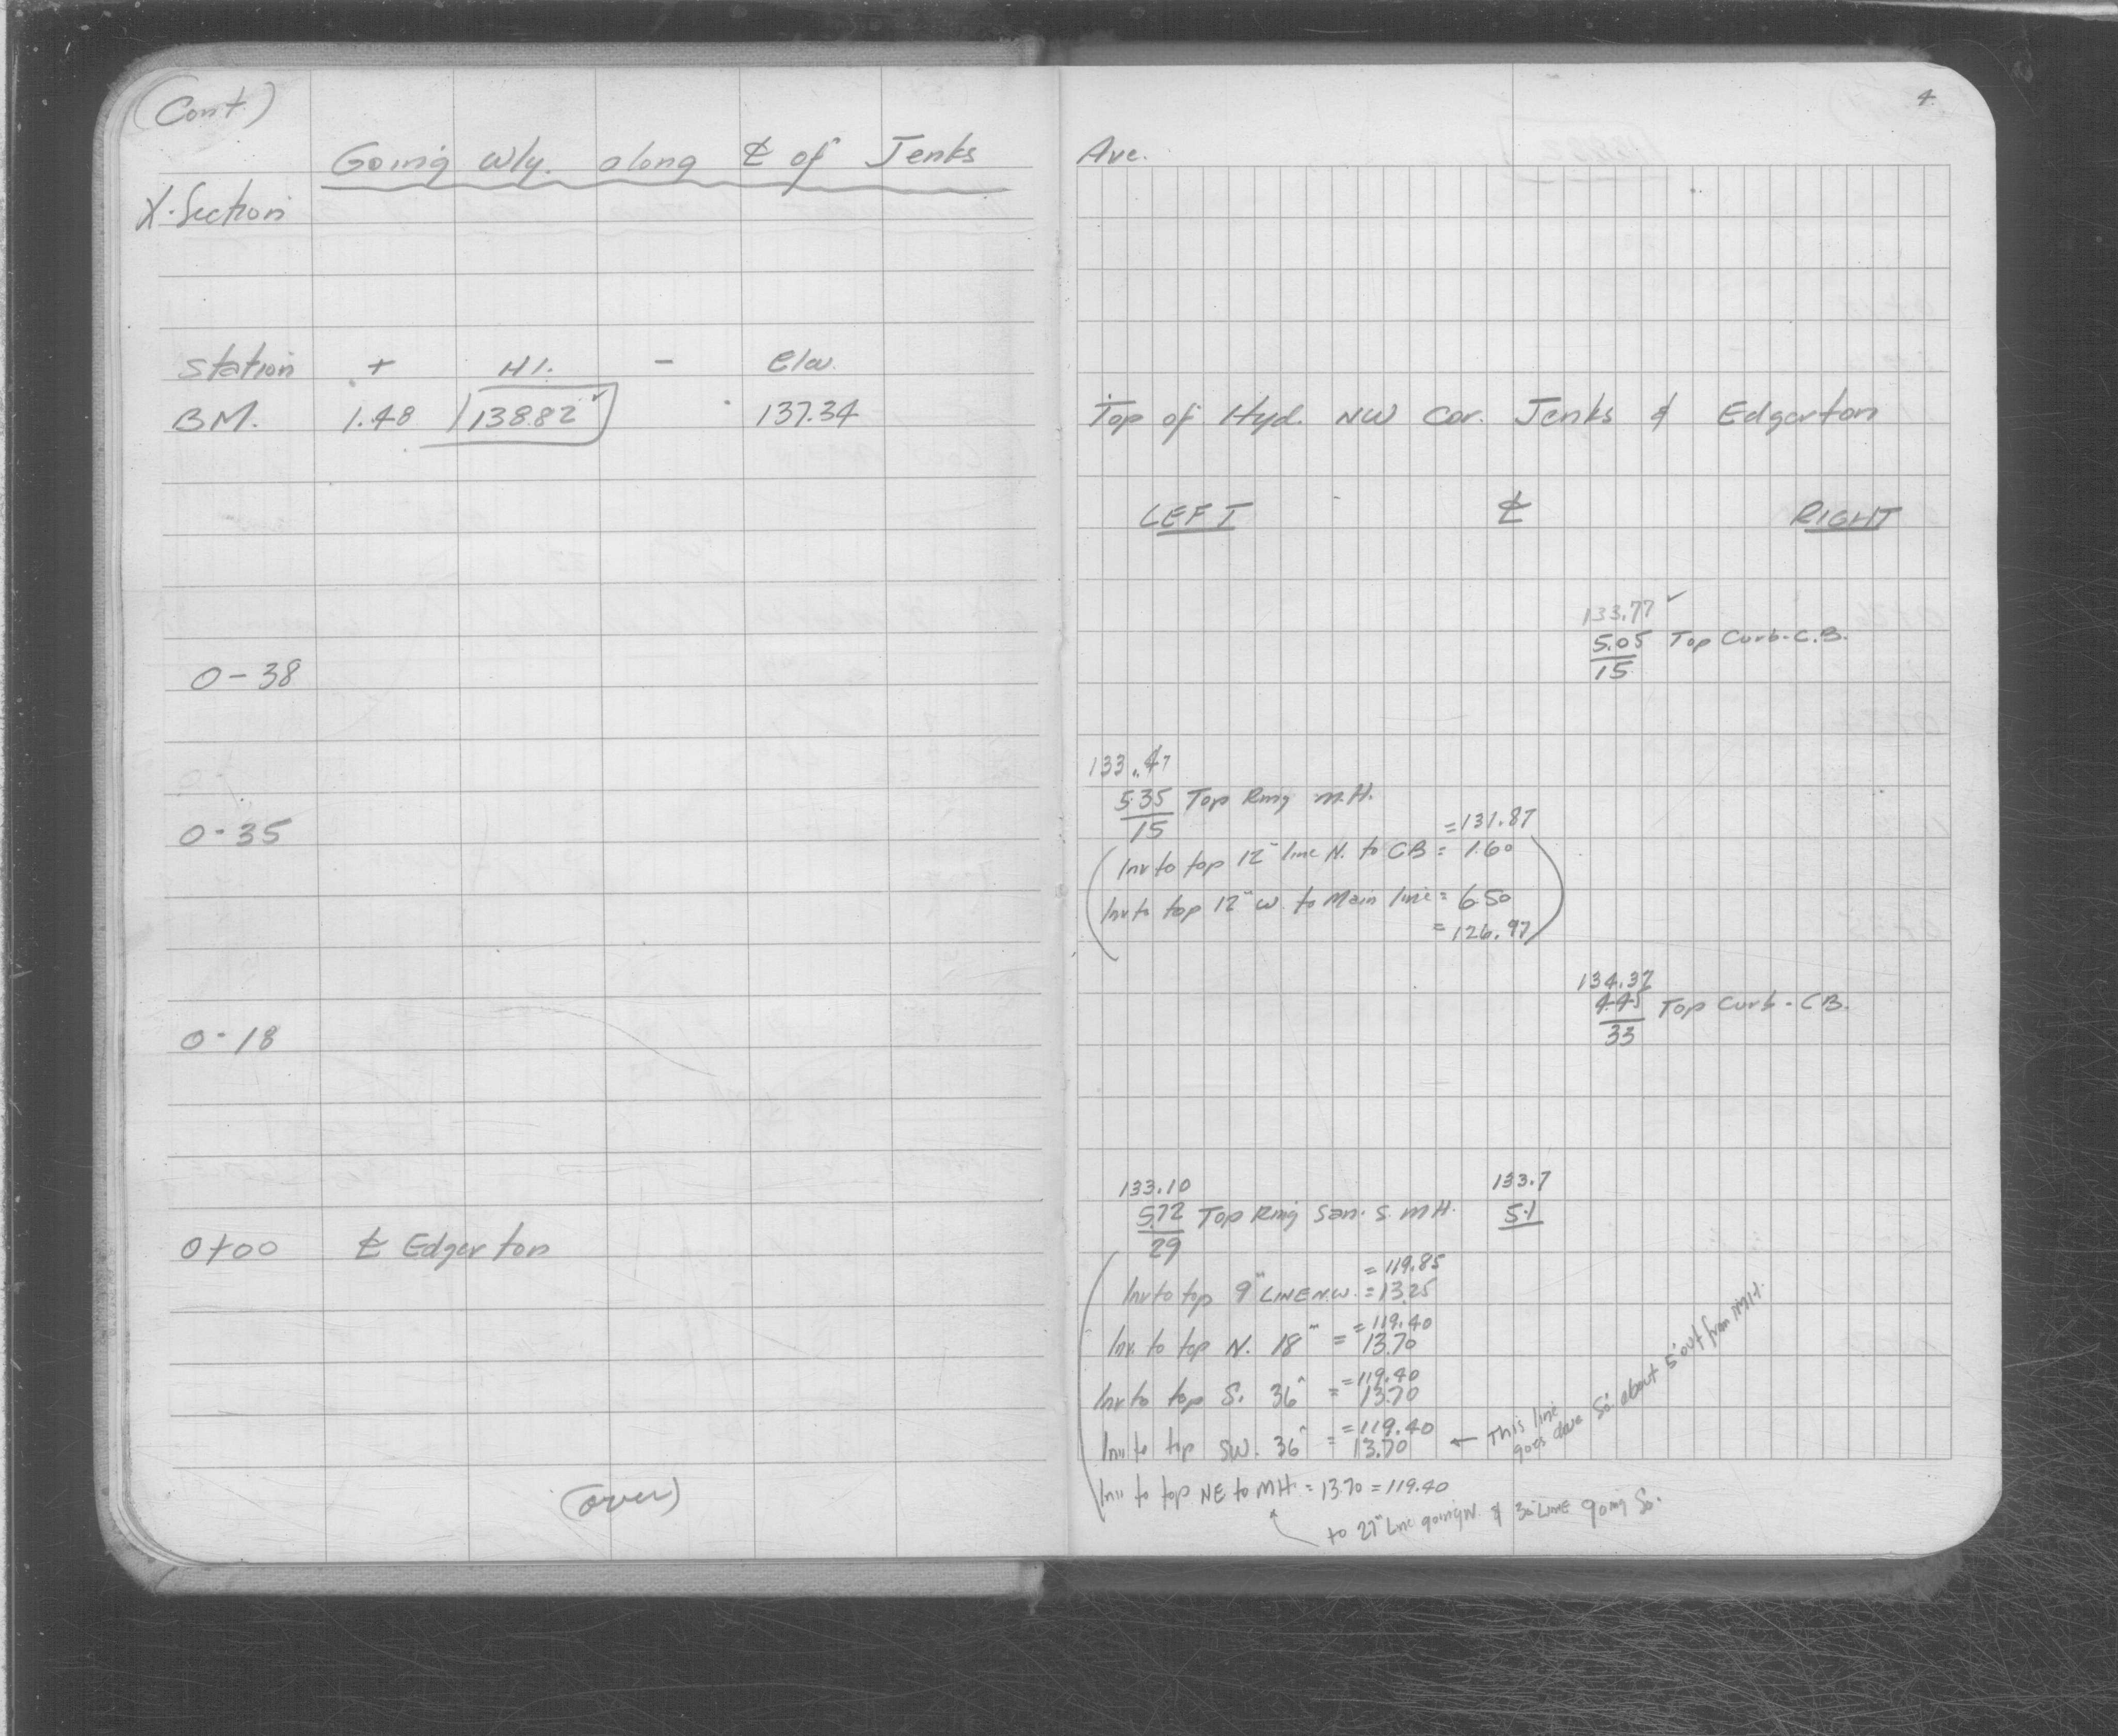 (Cont.)
4.
Going Wly. along ℄ of Jenks Ave.
X-Section
Station + H.I. - Elev.
BM. 1.48 138.82 ✓ 137.34 Top of Hyd. NW Cor. Jenks & Edgerton
LEFT ℄ RIGHT
133.77 ✓
5.05 Top Curb - C.B.
0-38 15
133.47
5.35 Top Ring M.H.
0-35 15
= 131.87
(Inv to top 12" line N. to CB = 1.60
Inv to top 12" W. to Main line = 6.50
= 126.97)
134.37
4.45 Top Curb - CB.
0-18 33
133.10 133.7
5.72 Top Ring San. S. MH. 5.1
0+00 ℄ Edgerton 29
= 119.85
(Inv to top 9" LINE N.W. = 13.25
= 119.40
Inv. to top N. 18" = 13.70
= 119.40
Inv to top S. 36" = 13.70
= 119.40
Inv to top SW. 36" = 13.70 ← This line
goes due So. about 5' out from MH.
Inv to top NE to MH. = 13.70 = 119.40
to 27" Line going W. & 30" LINE going So.
(over)